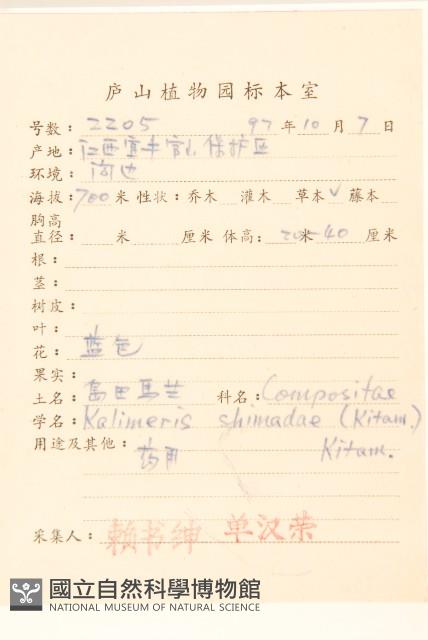 庐山植物园标本室
号数：2205 97年10月7日
产地：江西宜丰官山保护区
环境：沟边
海拔：700米 性状：乔木 灌木 草本✓ 藤本
胸高
直径： 米 厘米 体高：20米-40厘米
根：
茎：
树皮：
叶：
花：蓝色
果实：
土名：岛田马兰 科名：Compositae
学名：Kalimeris shimadae (Kitam.)
Kitam.
用途及其他：药用
采集人：赖书绅 单汉荣
國立自然科學博物館
NATIONAL MUSEUM OF NATURAL SCIENCE